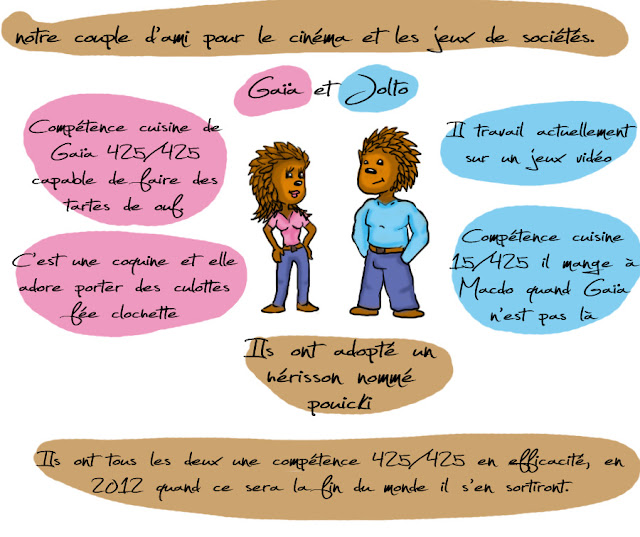 notre couple d'ami pour le cinéma et les jeux de sociétés.
Gaïa et Jolto
Compétence cuisine de
Gaïa 425/425
capable de faire des
tartes de ouf
Il travail actuellement
sur un jeux vidéo
C'est une coquine et elle
adore porter des culottes
fée clochette
Compétence cuisine
15/425 il mange à
Macdo quand Gaïa
n'est pas là
Ils ont adopté un
hérisson nommé
pouicki
Ils ont tous les deux une compétence 425/425 en efficacité, en
2012 quand ce sera la fin du monde il s'en sortiront.